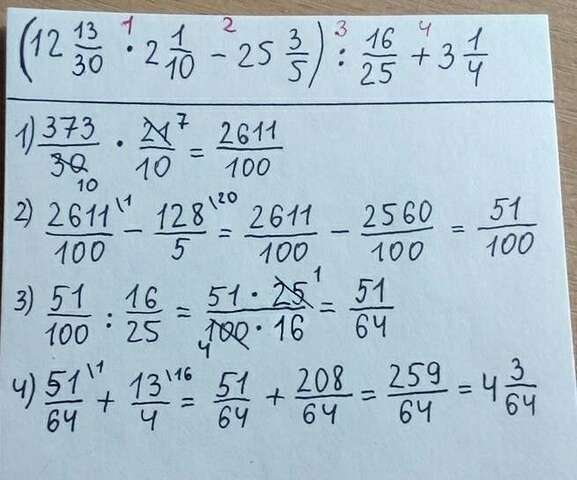 (12 13/30 · 2 1/10 − 25 3/5) : 16/25 + 3 1/4
1 2 3 4
1) 373/30 10 · 21/10 7 = 2611/100
2) 2611/100 \1 − 128/5 \20 = 2611/100 − 2560/100 = 51/100
3) 51/100 : 16/25 = 51 · 25 1/100 4 · 16 = 51/64
4) 51/64 \1 + 13/4 \16 = 51/64 + 208/64 = 259/64 = 4 3/64